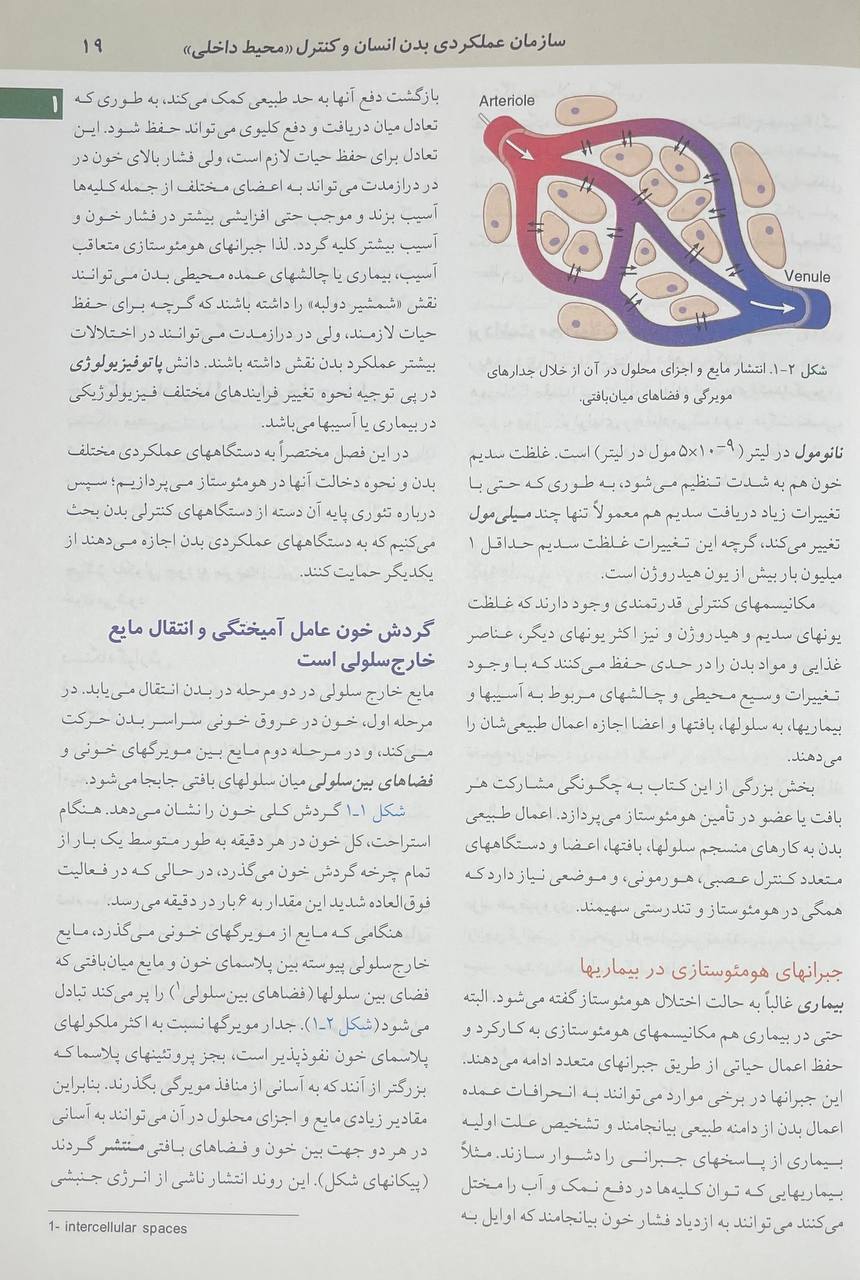 سازمان عملکردی بدن انسان و کنترل «محیط داخلی»
۱۹
۱
Arteriole
Venule
شکل ۲-۱. انتشار مایع و اجزای محلول در آن از خلال جدارهای
مویرگی و فضاهای میان‌بافتی.
نانومول در لیتر (۵×۱۰⁻⁹ مول در لیتر) است. غلظت سدیم
خون هم به شدت تنظیم می‌شود، به طوری که حتی با
تغییرات زیاد دریافت سدیم هم معمولاً تنها چند میلی‌مول
تغییر می‌کند، گرچه این تغییرات غلظت سدیم حداقل ۱
میلیون بار بیش از یون هیدروژن است.
مکانیسمهای کنترلی قدرتمندی وجود دارند که غلظت
یونهای سدیم و هیدروژن و نیز اکثر یونهای دیگر، عناصر
غذایی و مواد بدن را در حدی حفظ می‌کنند که با وجود
تغییرات وسیع محیطی و چالشهای مربوط به آسیبها و
بیماریها، به سلولها، بافتها و اعضا اجازه اعمال طبیعی‌شان را
می‌دهند.
بخش بزرگی از این کتاب به چگونگی مشارکت هر
بافت یا عضو در تأمین هومئوستاز می‌پردازد. اعمال طبیعی
بدن به کارهای منسجم سلولها، بافتها، اعضا و دستگاههای
متعدد کنترل عصبی، هورمونی، و موضعی نیاز دارد که
همگی در هومئوستاز و تندرستی سهیمند.
جبرانهای هومئوستازی در بیماریها
بیماری غالباً به حالت اختلال هومئوستاز گفته می‌شود. البته
حتی در بیماری هم مکانیسمهای هومئوستازی به کارکرد و
حفظ اعمال حیاتی از طریق جبرانهای متعدد ادامه می‌دهند.
این جبرانها در برخی موارد می‌توانند به انحرافات عمده
اعمال بدن از دامنه طبیعی بیانجامند و تشخیص علت اولیه
بیماری از پاسخهای جبرانی را دشوار سازند. مثلاً
بیماریهایی که توان کلیه‌ها در دفع نمک و آب را مختل
می‌کنند می‌توانند به ازدیاد فشار خون بیانجامند که اوایل به
بازگشت دفع آنها به حد طبیعی کمک می‌کند، به طوری که
تعادل میان دریافت و دفع کلیوی می‌تواند حفظ شود. این
تعادل برای حفظ حیات لازم است، ولی فشار بالای خون در
در درازمدت می‌تواند به اعضای مختلف از جمله کلیه‌ها
آسیب بزند و موجب حتی افزایشی بیشتر در فشار خون و
آسیب بیشتر کلیه گردد. لذا جبرانهای هومئوستازی متعاقب
آسیب، بیماری یا چالشهای عمده محیطی بدن می‌توانند
نقش «شمشیر دولبه» را داشته باشند که گرچه برای حفظ
حیات لازمند، ولی در درازمدت می‌توانند در اختلالات
بیشتر عملکرد بدن نقش داشته باشند. دانش پاتوفیزیولوژی
در پی توجیه نحوه تغییر فرایندهای مختلف فیزیولوژیکی
در بیماری یا آسیبها می‌باشد.
در این فصل مختصراً به دستگاههای عملکردی مختلف
بدن و نحوه دخالت آنها در هومئوستاز می‌پردازیم؛ سپس
درباره تئوری پایه آن دسته از دستگاههای کنترلی بدن بحث
می‌کنیم که به دستگاههای عملکردی بدن اجازه می‌دهند از
یکدیگر حمایت کنند.
گردش خون عامل آمیختگی و انتقال مایع
خارج‌سلولی است
مایع خارج سلولی در دو مرحله در بدن انتقال می‌یابد. در
مرحله اول، خون در عروق خونی سراسر بدن حرکت
می‌کند، و در مرحله دوم مایع بین مویرگهای خونی و
فضاهای بین‌سلولی میان سلولهای بافتی جابجا می‌شود.
شکل ۱ـ۱ گردش کلی خون را نشان می‌دهد. هنگام
استراحت، کل خون در هر دقیقه به طور متوسط یک بار از
تمام چرخه گردش خون می‌گذرد، در حالی که در فعالیت
فوق‌العاده شدید این مقدار به ۶ بار در دقیقه می‌رسد.
هنگامی که مایع از مویرگهای خونی می‌گذرد، مایع
خارج‌سلولی پیوسته بین پلاسمای خون و مایع میان‌بافتی که
فضای بین سلولها (فضاهای بین‌سلولی۱) را پر می‌کند تبادل
می‌شود (شکل ۲ـ۱). جدار مویرگها نسبت به اکثر ملکولهای
پلاسمای خون نفوذپذیر است، بجز پروتئینهای پلاسما که
بزرگتر از آنند که به آسانی از منافذ مویرگی بگذرند. بنابراین
مقادیر زیادی مایع و اجزای محلول در آن می‌توانند به آسانی
در هر دو جهت بین خون و فضاهای بافتی منتشر گردند
(پیکانهای شکل). این روند انتشار ناشی از انرژی جنبشی
1- intercellular spaces